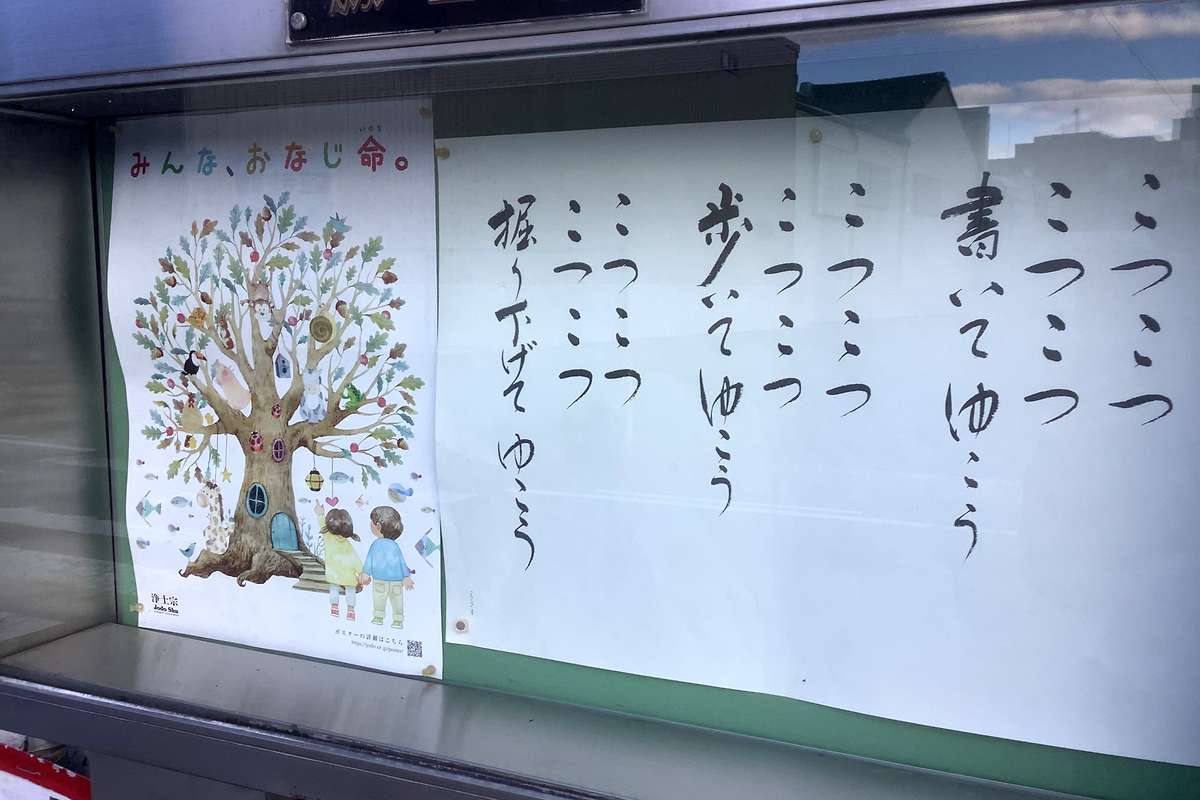 みんな、おなじ命。
いのち
浄土宗
Jodo Shu
ポスターの詳細はこちら
こつこつ
こつこつ
書いてゆこう
こつこつ
こつこつ
歩いてゆこう
こつこつ
こつこつ
掘り下げてゆこう